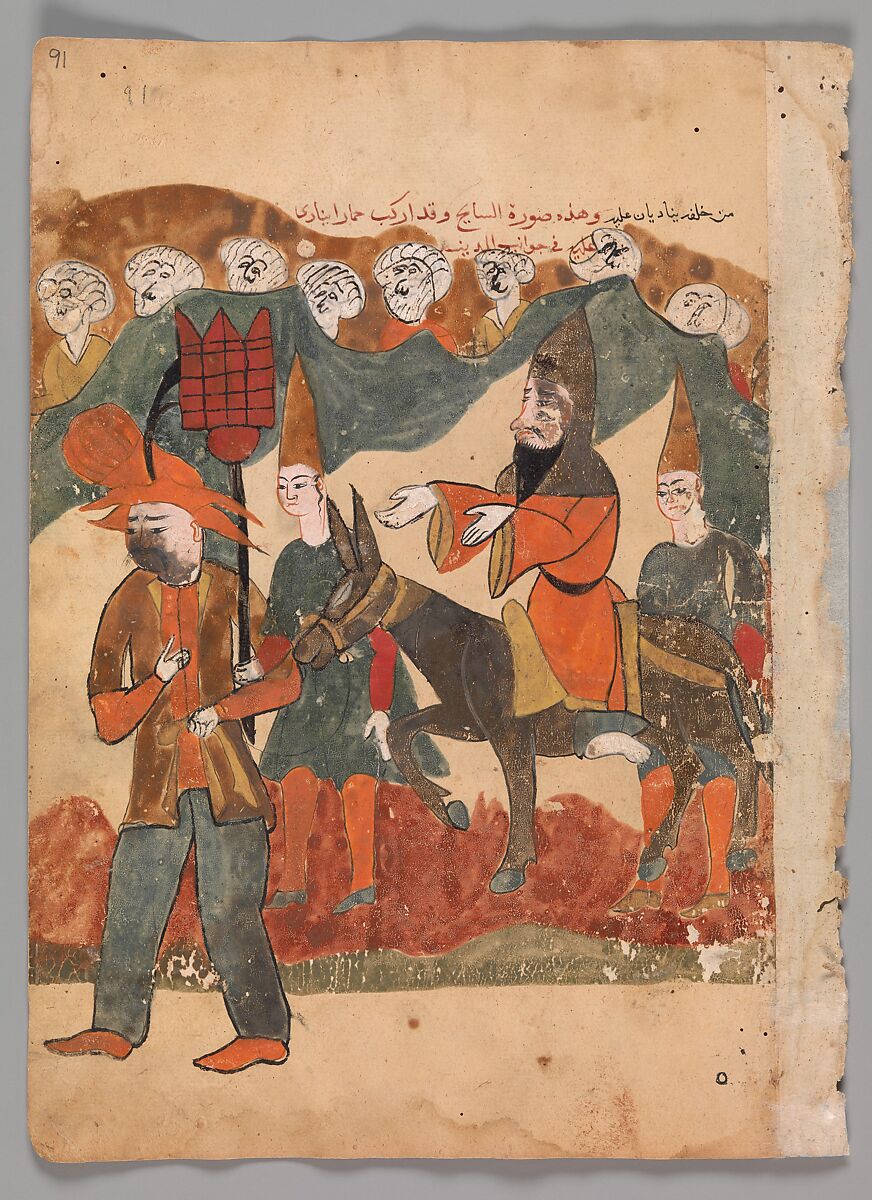 91
91
من خلفه يناديان عليه وهذه صورة السايح وقد اركب حمارا ينادى
عليه في جوانب المدينه